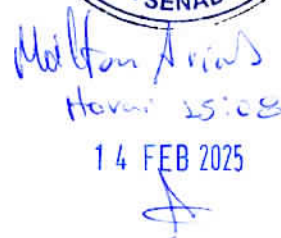 SENAD
Milton Arias
Hora: 15:08
14 FEB 2025